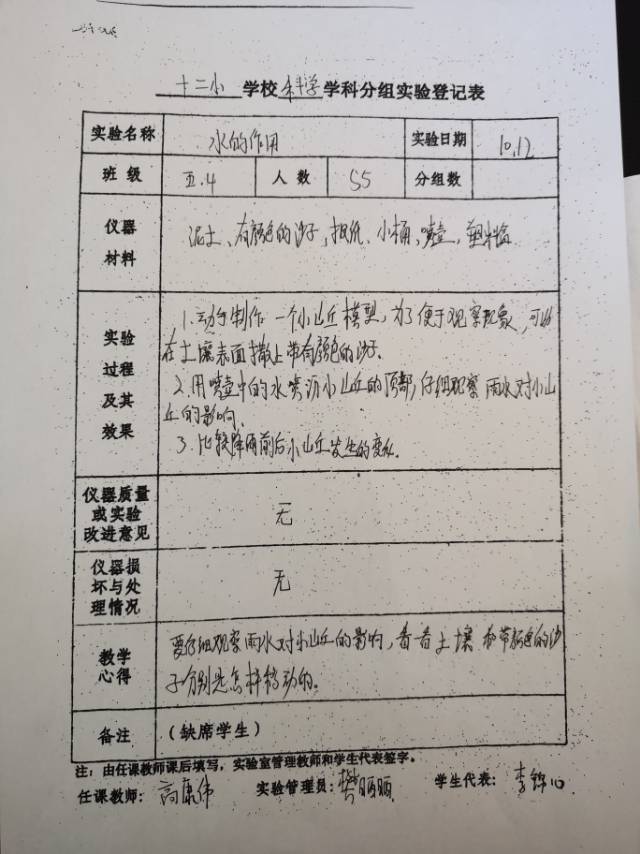 十二小学校科学学科分组实验登记表
实验名称 水的作用 实验日期 10.12
班级 五.4 人数 55 分组数
仪器材料 泥土、有颜色的沙子，报纸、小桶、喷壶，塑料盆
实验过程及其效果
1.动手制作一个小山丘模型，为了便于观察现象，可以
在土壤表面撒上带有颜色的沙子.
2.用喷壶中的水喷洒小山丘的顶部，仔细观察雨水对小山
丘的影响.
3.比较降雨前后小山丘发生的变化.
仪器质量或实验改进意见 无
仪器损坏与处理情况 无
教学心得
要仔细观察雨水对小山丘的影响，看看土壤和带颜色的沙
子分别是怎样移动的。
备注 （缺席学生）
注：由任课教师课后填写，实验室管理教师和学生代表签字。
任课教师：高康伟 实验管理员：樊丽丽 学生代表：李锦